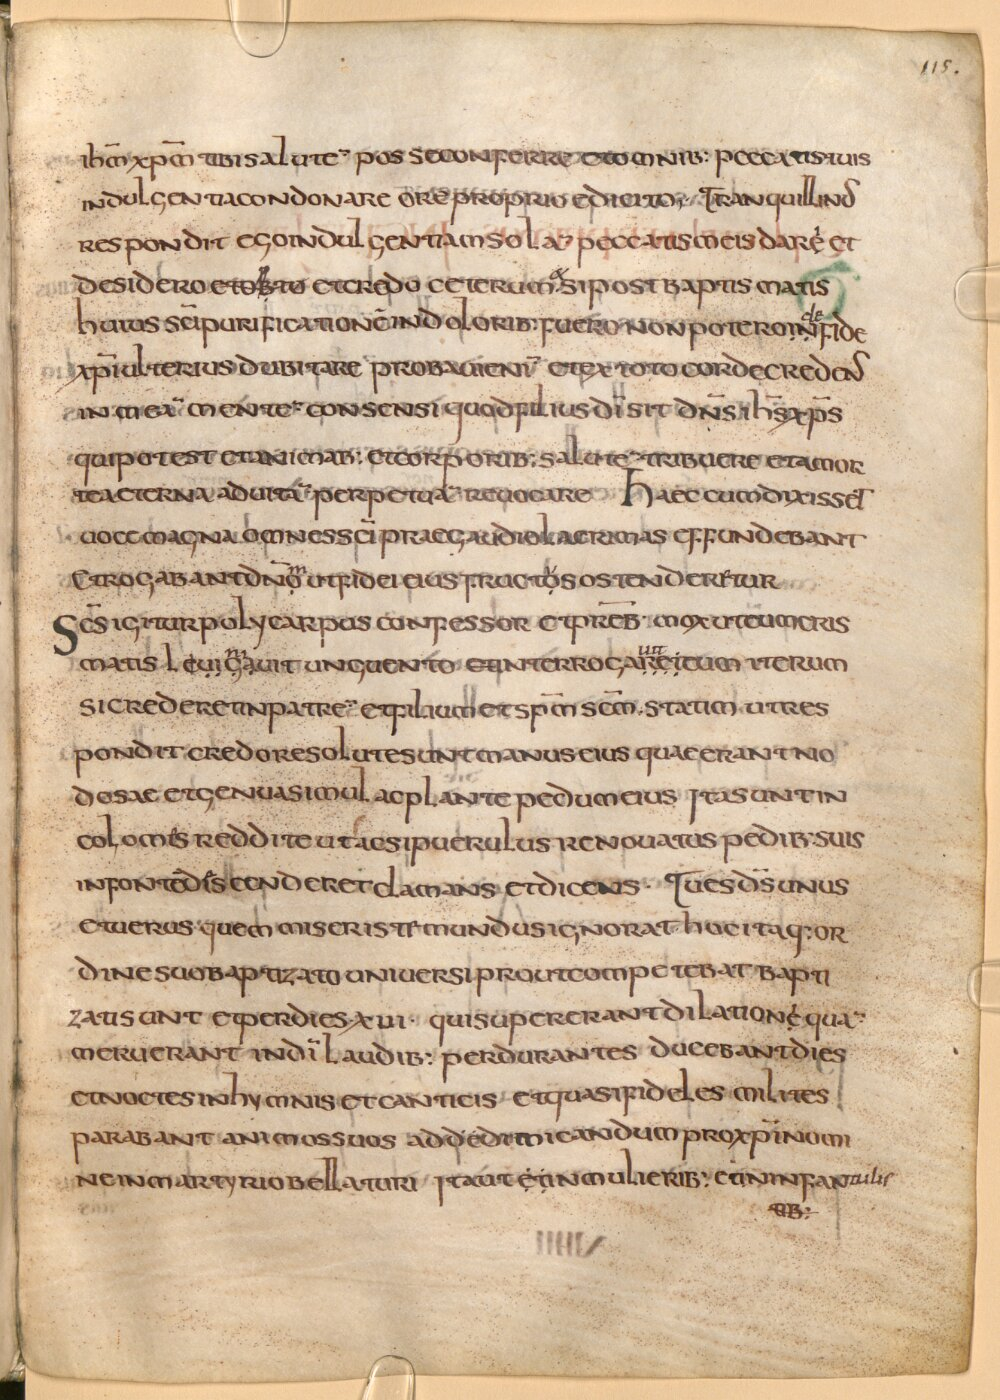 115.
ihm̄ xpm̄ tibi salutē posse conferre et omnib: peccatis tuis
indulgentia condonare ore proprio edicito; Tranquillinus
respondit ego indulgentiam sola peccatis meis dare et
desidero et obto et credo ceterum si post baptismatis
huius sc̄i purificationē in doloribꞏ fuero non potero infide de
xp̄i ulterius dubitare probavi enī et ex toto corde credens
in meā mente consensi quod filius dī sit dn̄s ihs̄ xp̄s
qui potest et animab: et corporib: salutē tribuere et a mor
te aeterna ad vitā perpetuā revocare Haec cum dixisset
voce magna omnes sc̄i prae gaudio lacrimas effundebant
Et rogabant dn̄o m ut fidei eius fructos ostenderetur
Sc̄s igitur polycarpus confessor et pr̄eb mox ut eum eris
matis leuigauit m unguento et interrogare ut eum iterum
si crederet in patrē et filium et spm̄ scm̄. statim ut res
pondit credo resolute sunt manus eius quae erant no
dosae et genua simul ac plante pedum eius Ita sunt in
colomes reddite ut ac si puerulus renovatus pedibꞏ suis
in fontē discenderet clamans et dicens· Tu es ds̄ unus
et verus quem miser iste mundus ignorat hoc itaq: or
dine suo baptizato universi prout competebat bapti
zati sunt et per dies xvi· qui supererant dilatione quā
meruerant in dī laudib: perdurantes ducebant dies
et noctes in hymnis et canticis et quasi fideles milites
parabant animos suos ad dedimicandum pro xpī nomi
ne in martyrio bellaturi Ita ut et in mulierib: et in infantulis
tib: